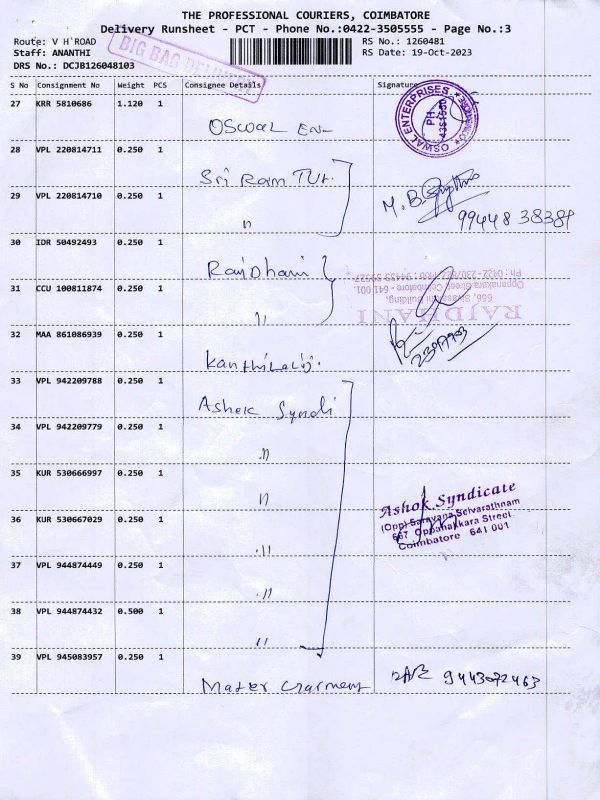 THE PROFESSIONAL COURIERS, COIMBATORE
Delivery Runsheet - PCT - Phone No.:0422-3505555 - Page No.:3
Route: V H ROAD
RS No.: 1260481
Staff: ANANTHI
RS Date: 19-Oct-2023
DRS No.: DCJB126048103
BIG BAG DELIVERY
S No Consignment No Weight PCS Consignee Details Signature
27 KRR 5810686 1.120 1
OSWAL EN
OSWAL ENTERPRISES
PH
28 VPL 220814711 0.250 1
Sri Ram
29 VPL 220814710 0.250 1
"
M.B.
99448 38384
30 IDR 50492493 0.250 1
RajDhani
RAJDHANI
666, Sivasami Building,
Oppanakara Street, Coimbatore - 641 001.
31 CCU 100811874 0.250 1
"
32 MAA 861086939 0.250 1
33 VPL 942209788 0.250 1
Ashok Syndi
34 VPL 942209779 0.250 1
"
35 KUR 530666997 0.250 1
"
36 KUR 530667029 0.250 1
"
Ashok Syndicate
(Opp) Saravana Selvarathnam
667 Oppanakkara Street
Coimbatore 641 001
37 VPL 944874449 0.250 1
"
38 VPL 944874432 0.500 1
"
39 VPL 945083957 0.250 1
Mater Garment
9443072463